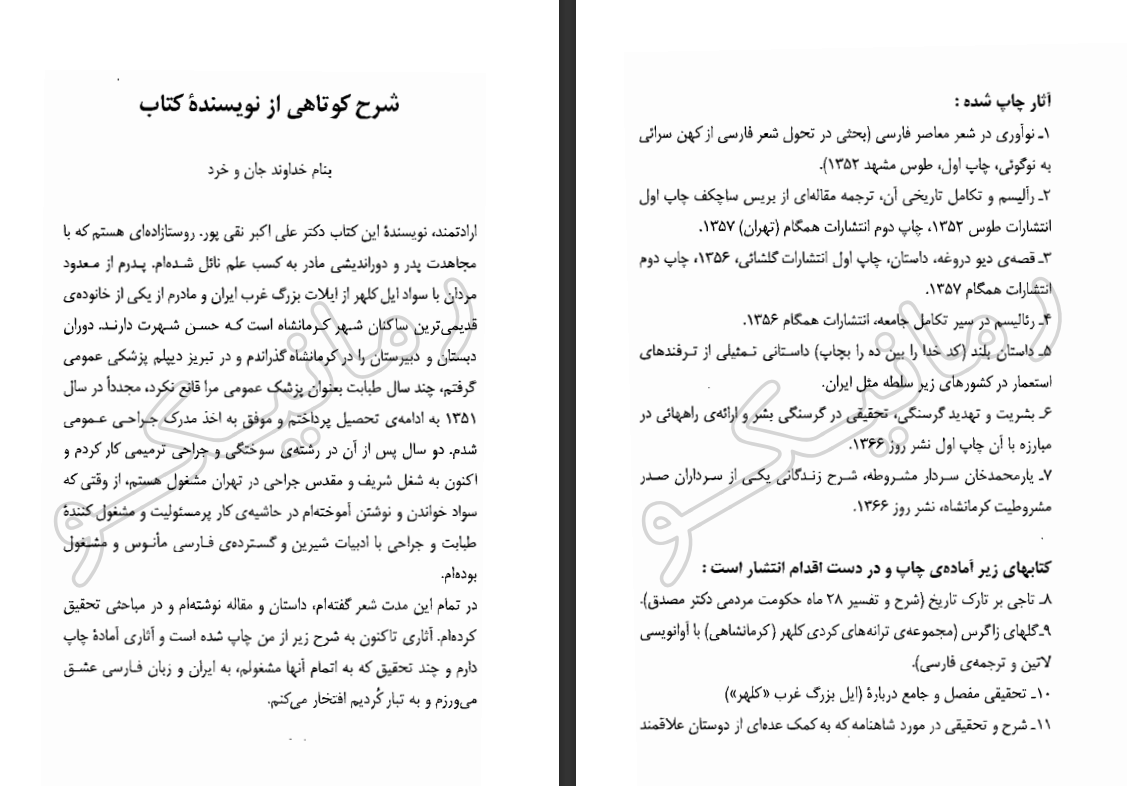 شرح کوتاهی از نویسندهٔ کتاب
بنام خداوند جان و خرد
ارادتمند، نویسندهٔ این کتاب دکتر علی اکبر نقی پور. روستازاده‌ای هستم که با
مجاهدت پدر و دوراندیشی مادر به کسب علم نائل شده‌ام. پدرم از معدود
مردان با سواد ایل کلهر از ایلات بزرگ غرب ایران و مادرم از یکی از خانوده‌ی
قدیمی‌ترین ساکنان شهر کرمانشاه است که حسن شهرت دارند. دوران
دبستان و دبیرستان را در کرمانشاه گذراندم و در تبریز دیپلم پزشکی عمومی
گرفتم، چند سال طبابت بعنوان پزشک عمومی مرا قانع نکرد، مجدداً در سال
۱۳۵۱ به ادامه‌ی تحصیل پرداختم و موفق به اخذ مدرک جراحی عمومی
شدم. دو سال پس از آن در رشته‌ی سوختگی و جراحی ترمیمی کار کردم و
اکنون به شغل شریف و مقدس جراحی در تهران مشغول هستم، از وقتی که
سواد خواندن و نوشتن آموخته‌ام در حاشیه‌ی کار پرمسئولیت و مشغول کنندهٔ
طبابت و جراحی با ادبیات شیرین و گسترده‌ی فارسی مأنوس و مشغول
بوده‌ام.
در تمام این مدت شعر گفته‌ام، داستان و مقاله نوشته‌ام و در مباحثی تحقیق
کرده‌ام. آثاری تاکنون به شرح زیر از من چاپ شده است و آثاری آمادهٔ چاپ
دارم و چند تحقیق که به اتمام آنها مشغولم، به ایران و زبان فارسی عشق
می‌ورزم و به تبار کُردیم افتخار می‌کنم.
آثار چاپ شده :
۱ـ نوآوری در شعر معاصر فارسی (بحثی در تحول شعر فارسی از کهن سرائی
به نوگوئی، چاپ اول، طوس مشهد ۱۳۵۲).
۲ـ رآلیسم و تکامل تاریخی آن، ترجمه مقاله‌ای از بریس ساچکف چاپ اول
انتشارات طوس ۱۳۵۲، چاپ دوم انتشارات همگام (تهران) ۱۳۵۷.
۳ـ قصه‌ی دیو دروغه، داستان، چاپ اول انتشارات گلشائی، ۱۳۵۶، چاپ دوم
انتشارات همگام ۱۳۵۷.
۴ـ رئالیسم در سیر تکامل جامعه، انتشارات همگام ۱۳۵۶.
۵ـ داستان بلند (کد خدا را بین ده را بچاپ) داستانی تمثیلی از ترفندهای
استعمار در کشورهای زیر سلطه مثل ایران.
۶ـ بشریت و تهدید گرسنگی، تحقیقی در گرسنگی بشر و ارائه‌ی راههائی در
مبارزه با آن چاپ اول نشر روز ۱۳۶۶.
۷ـ یارمحمدخان سردار مشروطه، شرح زندگانی یکی از سرداران صدر
مشروطیت کرمانشاه، نشر روز ۱۳۶۶.
کتابهای زیر آماده‌ی چاپ و در دست اقدام انتشار است :
۸ـ تاجی بر تارک تاریخ (شرح و تفسیر ۲۸ ماه حکومت مردمی دکتر مصدق).
۹ـگلهای زاگرس (مجموعه‌ی ترانه‌های کردی کلهر (کرمانشاهی) با آوانویسی
لاتین و ترجمه‌ی فارسی).
۱۰ـ تحقیقی مفصل و جامع دربارهٔ (ایل بزرگ غرب «کلهر»)
۱۱ـ شرح و تحقیقی در مورد شاهنامه که به کمک عده‌ای از دوستان علاقمند
رمانیکو
رمانیکو